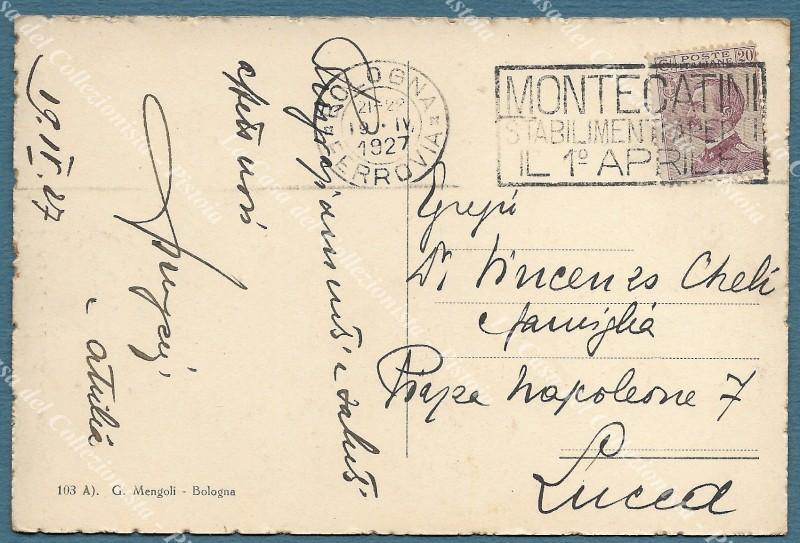 19.IV.27
Ringraziamenti e saluti
affettuosi
BOLOGNA
21-22
IV
1927
FERROVIA
POSTE
ITALIANE
20
MONTECATINI
STABILIMENTI APERTI
IL 1º APRILE
Dr Vincenzo Cheli
famiglia
Piazza Napoleone 7
Lucca
103 A). G. Mengoli - Bologna
La Casa del Collezionista - Pistoia